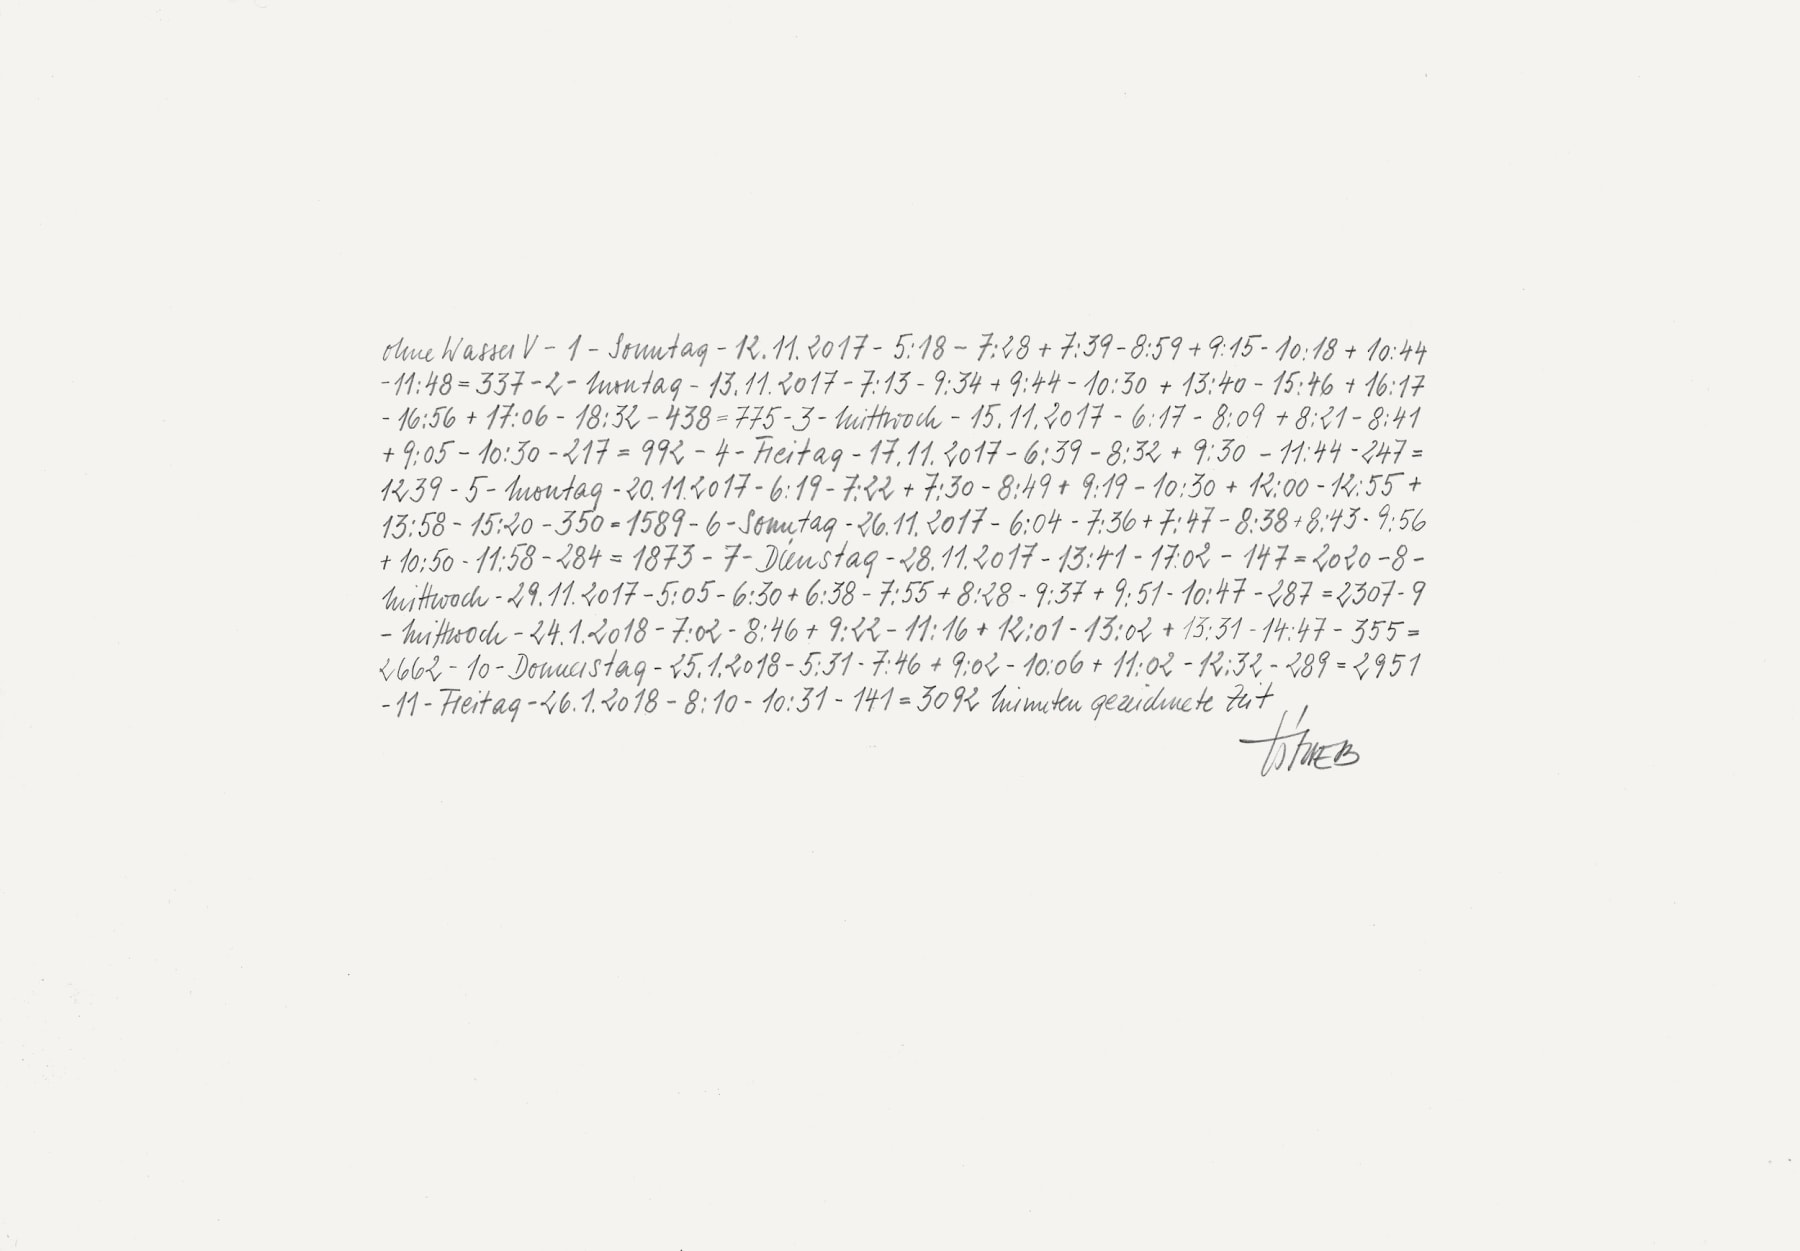 ohne Wasser V - 1 - Sonntag - 12.11.2017 - 5:18 - 7:28 + 7:39 - 8:59 + 9:15 - 10:18 + 10:44
- 11:48 = 337 - 2 - Montag - 13.11.2017 - 7:13 - 9:34 + 9:44 - 10:30 + 13:40 - 15:46 + 16:17
- 16:56 + 17:06 - 18:32 - 438 = 775 - 3 - Mittwoch - 15.11.2017 - 6:17 - 8:09 + 8:21 - 8:41
+ 9:05 - 10:30 - 217 = 992 - 4 - Freitag - 17.11.2017 - 6:39 - 8:32 + 9:30 - 11:44 - 247 =
1239 - 5 - Montag - 20.11.2017 - 6:19 - 7:22 + 7:30 - 8:49 + 9:19 - 10:30 + 12:00 - 12:55 +
13:58 - 15:20 - 350 = 1589 - 6 - Sonntag - 26.11.2017 - 6:04 - 7:36 + 7:47 - 8:38 + 8:43 - 9:56
+ 10:50 - 11:58 - 284 = 1873 - 7 - Dienstag - 28.11.2017 - 13:41 - 17:02 - 147 = 2020 - 8 -
Mittwoch - 29.11.2017 - 5:05 - 6:30 + 6:38 - 7:55 + 8:28 - 9:37 + 9:51 - 10:47 - 287 = 2307 - 9
- Mittwoch - 24.1.2018 - 7:02 - 8:46 + 9:22 - 11:16 + 12:01 - 13:02 + 13:31 - 14:47 - 355 =
2662 - 10 - Donnerstag - 25.1.2018 - 5:31 - 7:46 + 9:02 - 10:06 + 11:02 - 12:32 - 289 = 2951
- 11 - Freitag - 26.1.2018 - 8:10 - 10:31 - 141 = 3092 Minuten gezeichnete Zeit